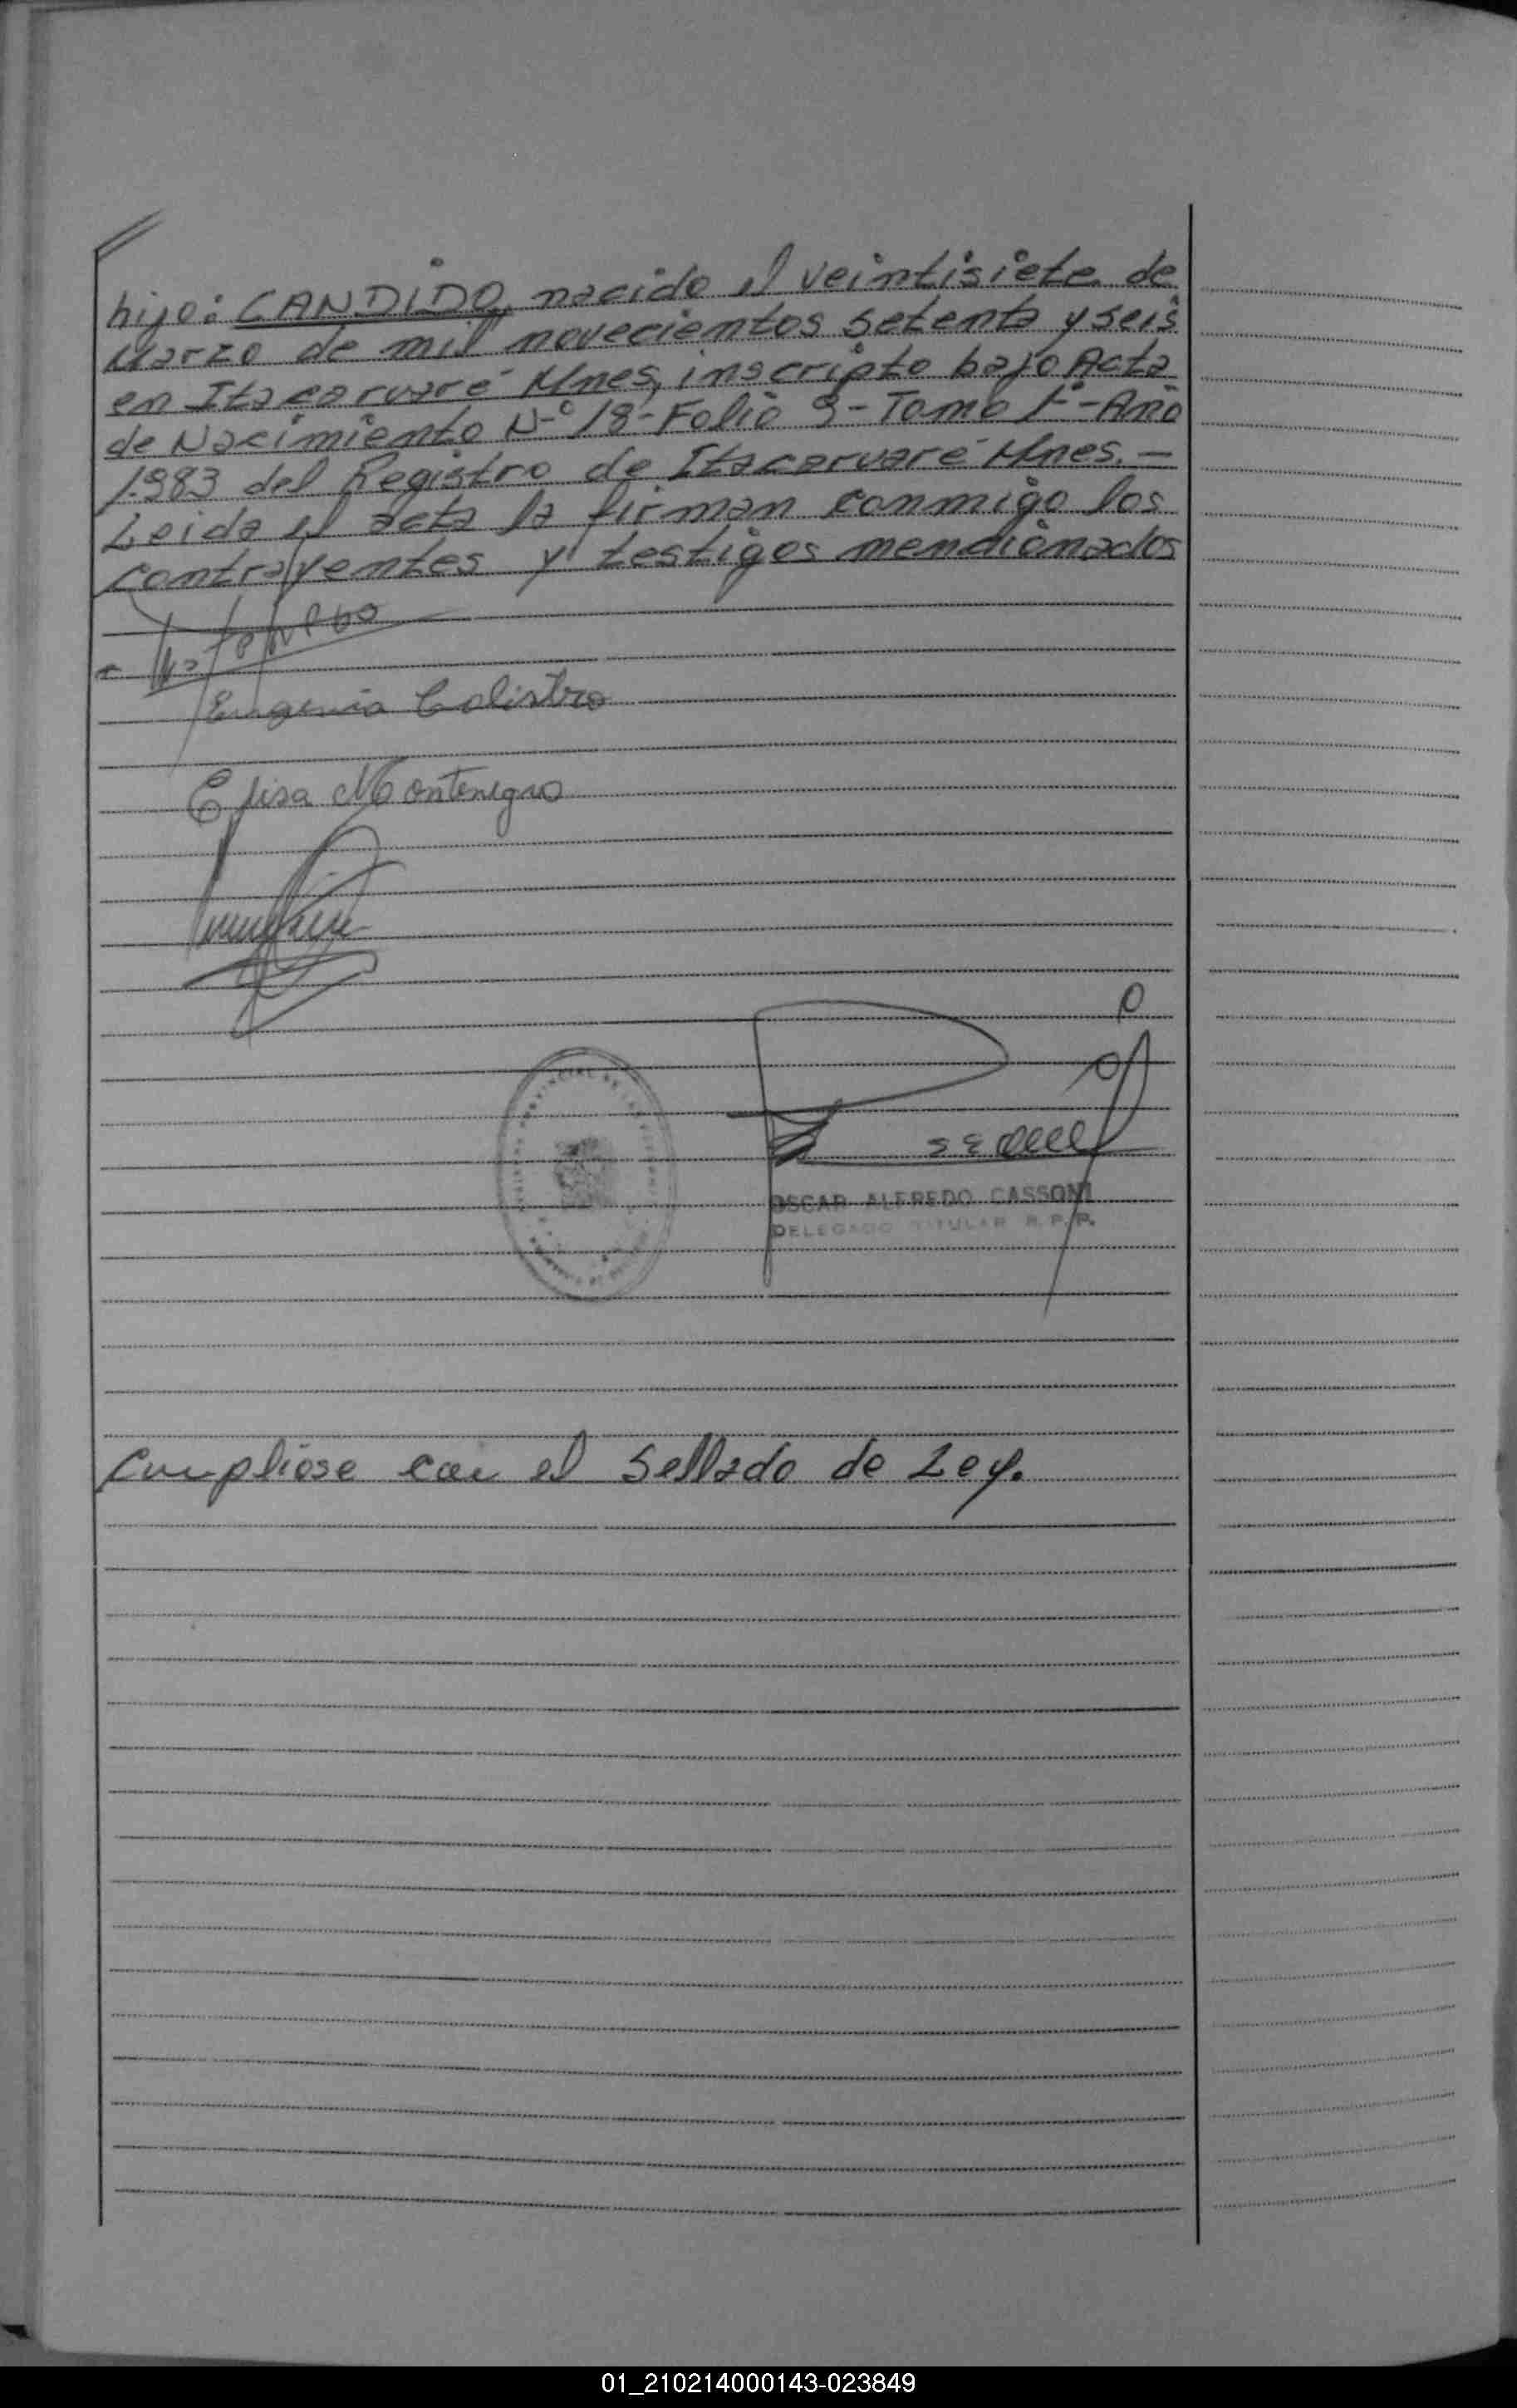 hijo: CANDIDO, nacido el veintisiete de
Marzo de mil novecientos setenta y seis
en Itacaruaré Mnes, inscripto bajo Acta
de Nacimiento N-º 18-Folio 9-Tomo 1º-Año
1.983 del Registro de Itacaruaré Mnes.-
Leida el acta la firman conmigo los
contrayentes y testigos mendionados
Eugenia Colistro
Elisa Montenegro
OSCAR ALFREDO CASSONI
DELEGADO TITULAR R.P.P.
Cumpliose con el Sellado de Ley.
01_210214000143-023849